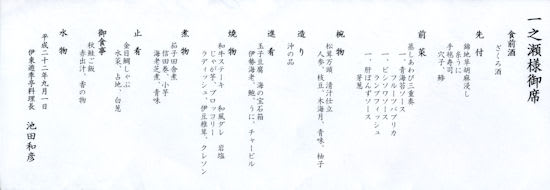 一之瀬様御席
食前酒
ざくろ酒
先付
錦地草胡麻浸し
糸うに
手毬寿司
穴子、鯵
前菜
蒸しあわび三重奏
一、青海苔ソース
フルーツパプリカ
一、ビンソワソース
ランプフィッシュ
一、肝ぽんずソース
芽葱
椀物
松茸万頭、清汁仕立
人参、枝豆、木海月、青味、柚子
造り
沖の品
進肴
玉子豆腐、海の宝石箱
伊勢海老、鮑、うに、チャービル
焼物
和牛ステーキ 和風ダレ 岩塩
じゃが芋、ブロッコリー
ラディッシュ、伊豆椎茸、クレソン
煮物
茄子田舎煮
信田巻、小芋
海老芝煮、青味
止肴
金目鯛しゃぶ
水菜、占地、白葱
御食事
秋鮭ご飯
赤出汁、香の物
水物
平成二十二年九月一日
伊東遊季亭料理長 池田和彦